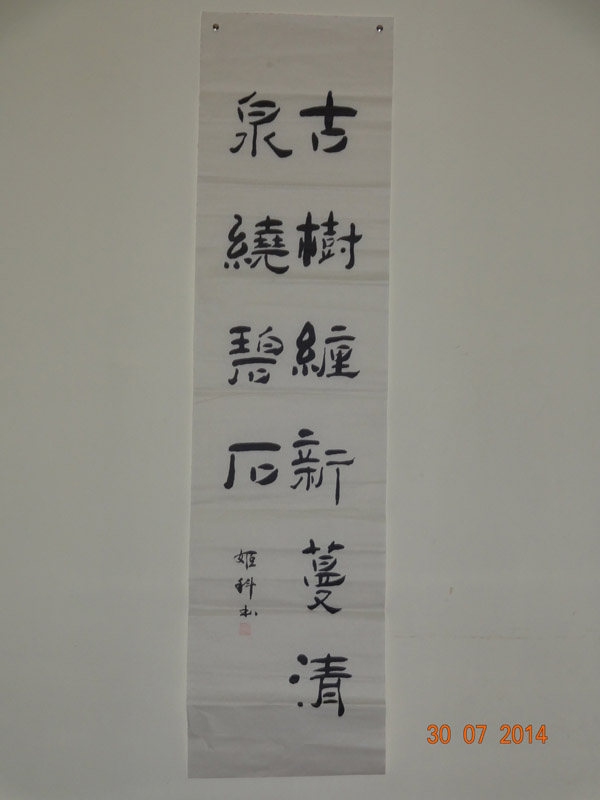 古樹纏新蔓清
泉繞碧石
姬科书
30 07 2014